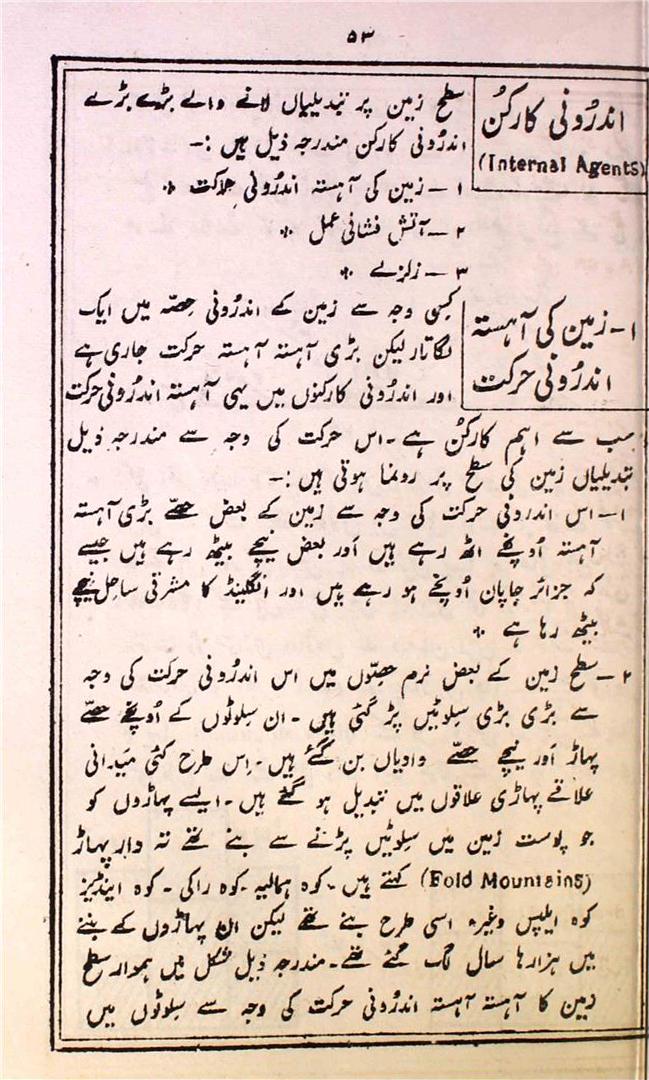 ۵۳
اندرُونی کارکُن
(Internal Agents)
سطح زمین پر تبدیلیاں لانے والے بڑے بڑے
اندرُونی کارکن مندرجہ ذیل ہیں :۔
۱ ۔ زمین کی آہستہ اندرُونی حرکت ٭
۲ ۔ آتش فشانی عمل ٭
۳ ۔ زلزلے ٭
۱۔ زمین کی آہستہ
اندرُونی حرکت
کِسی وجہ سے زمین کے اندرُونی حِصّہ میں ایک
لگاتار لیکن بڑی آہستہ آہستہ حرکت جاری ہے
اور اندرُونی کارکنوں میں یہی آہستہ اندرُونی حرکت
سب سے اہم کارکُن ہے۔ اس حرکت کی وجہ سے مندرجہ ذیل
تبدیلیاں زمین کی سطح پر رونما ہوتی ہیں :۔
۱۔ اس اندرُونی حرکت کی وجہ سے زمین کے بعض حصّے بڑی آہستہ
آہستہ اُونچے اٹھ رہے ہیں اَور بعض نیچے بیٹھ رہے ہیں جیسے
کہ جزائر جاپان اُونچے ہو رہے ہیں اور انگلینڈ کا مشرقی ساحل نیچے
بیٹھ رہا ہے ٭
۲ ۔ سطح زمین کے بعض نرم حصّوں میں اس اندرُونی حرکت کی وجہ
سے بڑی بڑی سِلوٹیں پڑ گئی ہیں ۔ ان سِلوٹوں کے اُونچے حصّے
پہاڑ اَور نیچے حصّے وادیاں بن گئے ہیں۔ اِس طرح کئی میَدانی
علاقے پہاڑی علاقوں میں تبدیل ہو گئے ہیں۔ ایسے پہاڑوں کو
جو پوست زمین میں سِلوٹیں پڑنے سے بنے تھے تہ دار پہاڑ
(Fold Mountains) کہتے ہیں۔ کوہ ہمالیہ ۔ کوہ راکی ۔ کوہ اینڈیز
کوہ ایلپس وغیرہ اسی طرح بنے تھے لیکن ان پہاڑوں کے بننے
میں ہزارہا سال لگ گئے تھے۔ مندرجہ ذیل شکل میں ہموار سطح
زمین کا آہستہ آہستہ اندرُونی حرکت کی وجہ سے سِلوٹوں میں